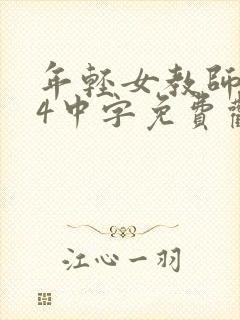 年輕女教師
4中字免費
江心一羽